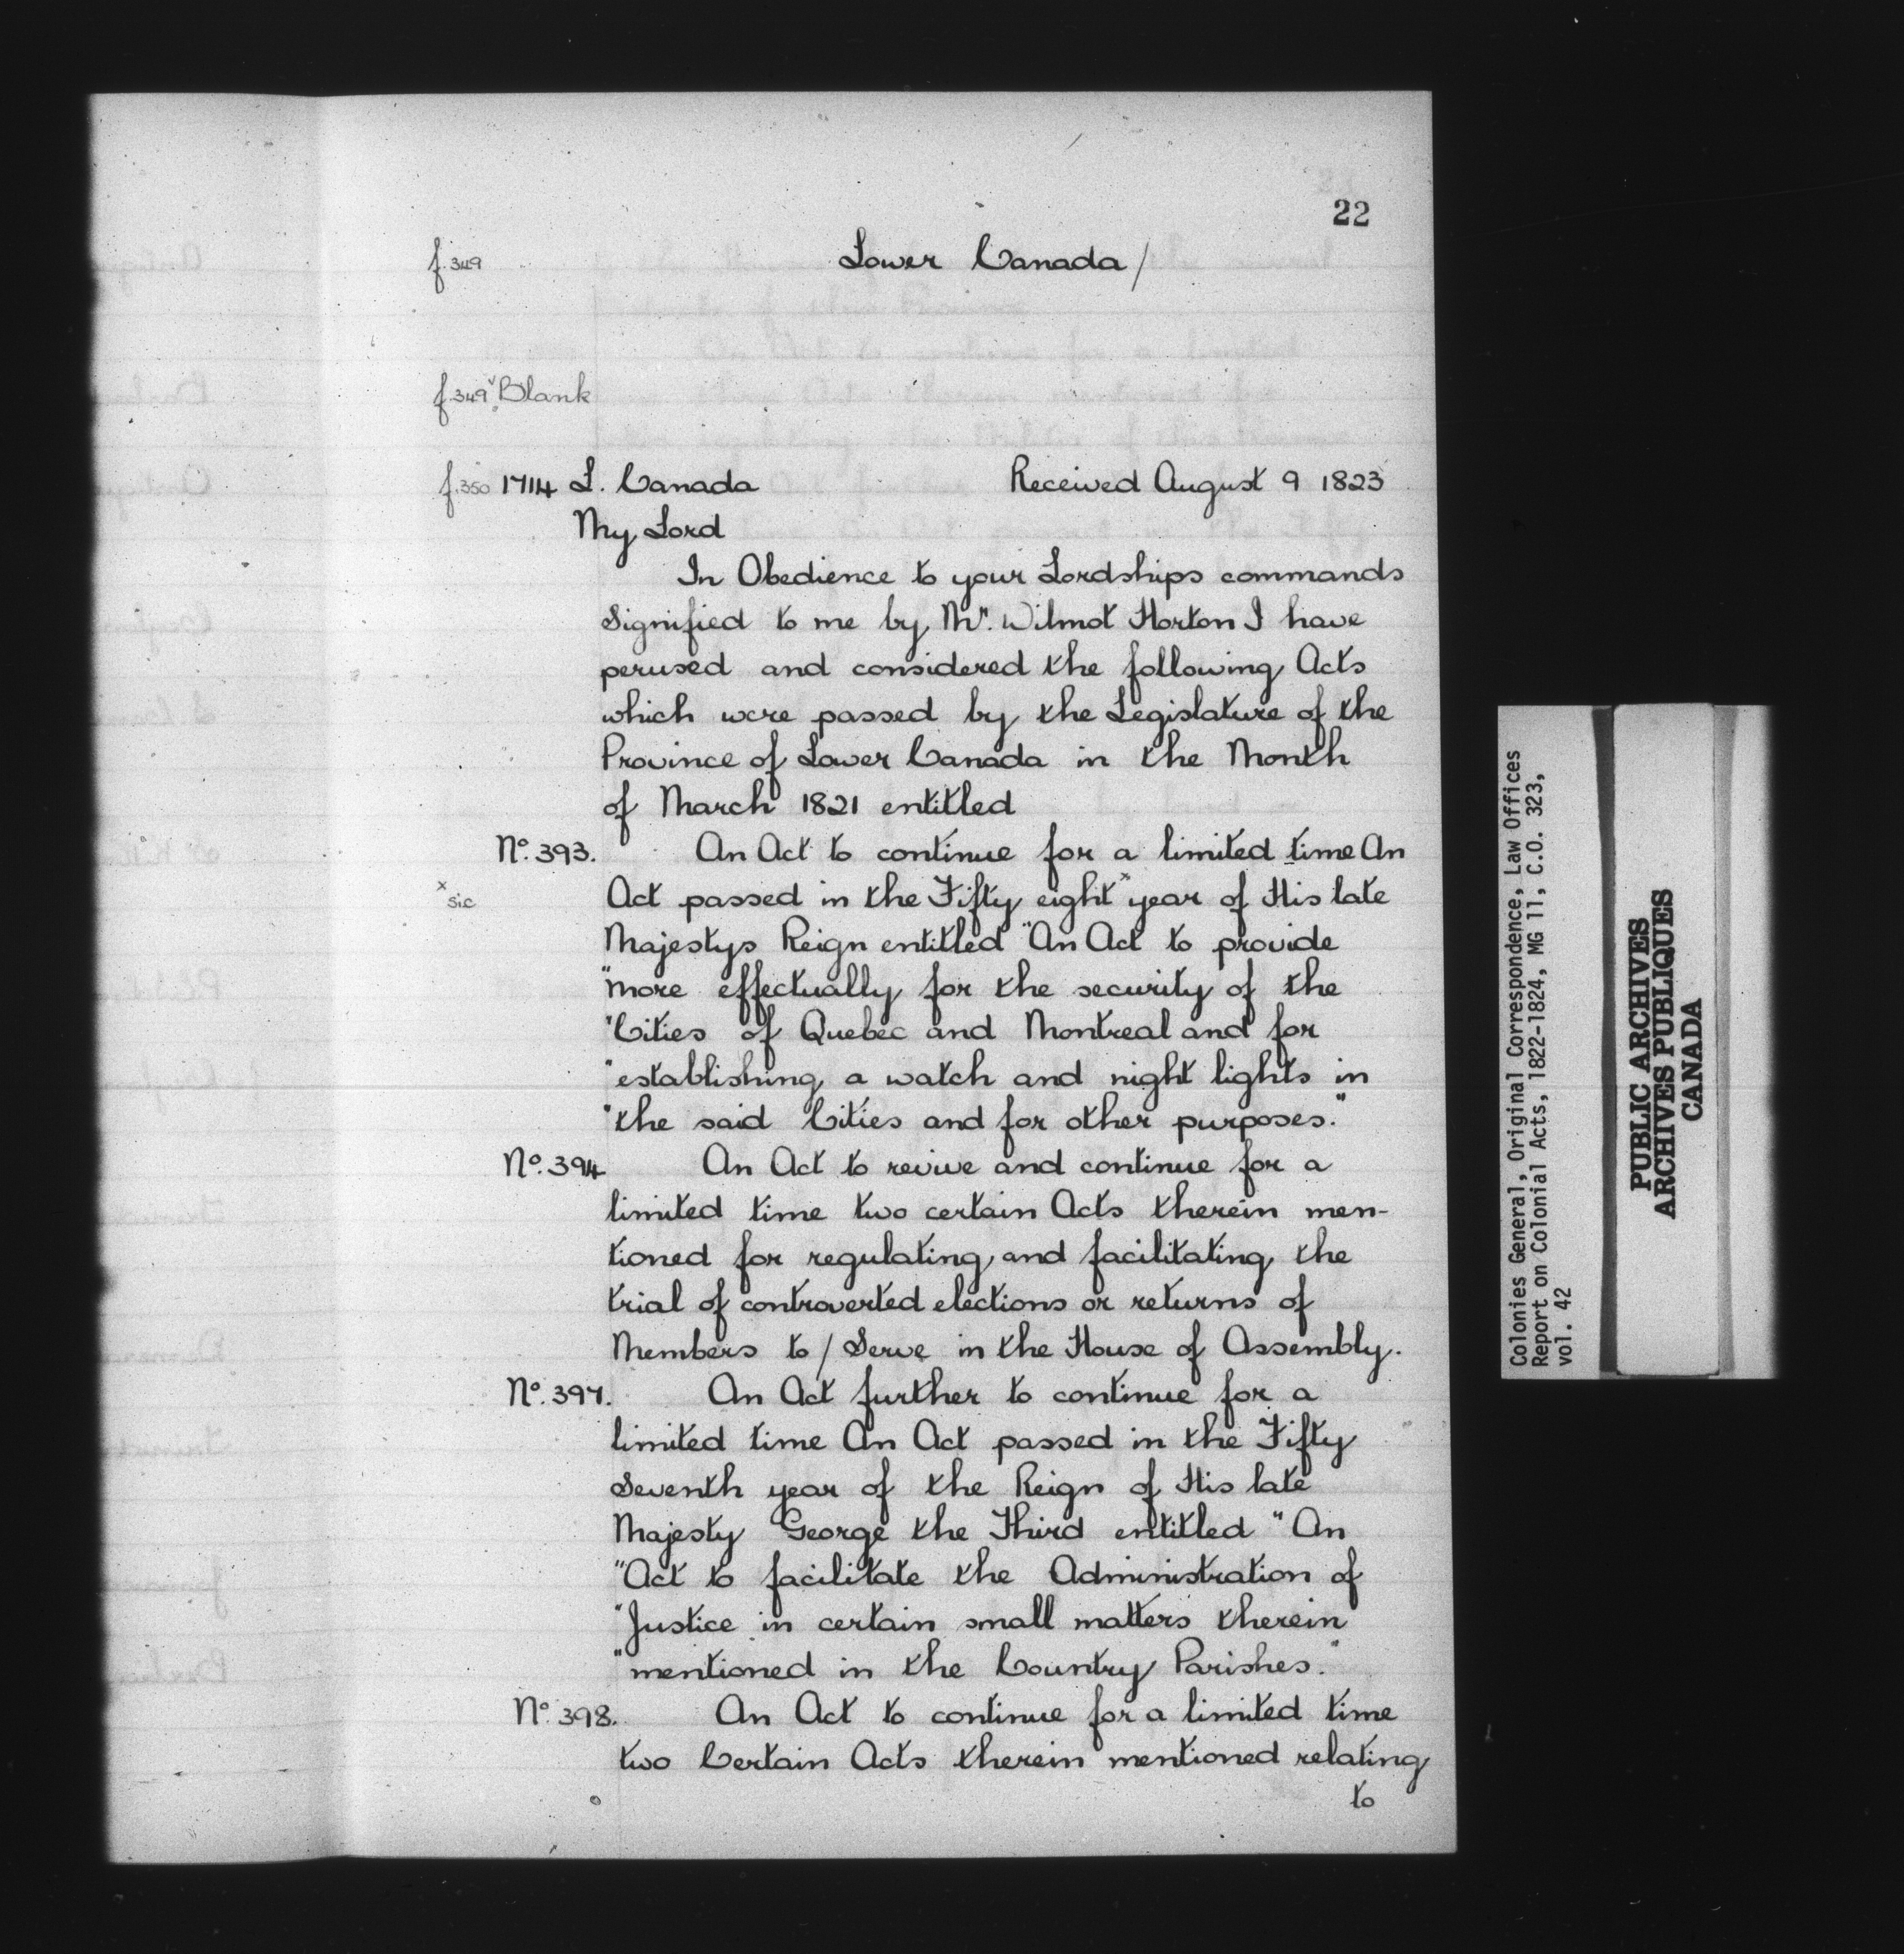 22
f.349 Lower Canada/
f.349v Blank
f.350 1714 L. Canada Received August 9 1823
My Lord
In Obedience to your Lordships commands
Signified to me by Mr. Wilmot Horton I have
perused and considered the following Acts
which were passed by the Legislature of the
Province of Lower Canada in the Month
of March 1821 entitled
No. 393. An Act to continue for a limited time An
x sic Act passed in the Fifty eight x year of His late
Majestys Reign entitled "An Act to provide
"more effectually for the security of the
"Cities of Quebec and Montreal and for
"establishing a watch and night lights in
"the said Cities and for other purposes."
No. 394 An Act to revive and continue for a
limited time two certain Acts therein men-
tioned for regulating and facilitating the
trial of controverted elections or returns of
Members to / Serve in the House of Assembly.
No. 397. An Act further to continue for a
limited time An Act passed in the Fifty
Seventh year of the Reign of His late
Majesty George the Third entitled "An
"Act to facilitate the Administration of
"Justice in certain small matters therein
"mentioned in the Country Parishes."
No. 398. An Act to continue for a limited time
two Certain Acts therein mentioned relating
to
Colonies General, Original Correspondence, Law Offices
Report on Colonial Acts, 1822-1824, MG 11, C.O. 323,
vol. 42
PUBLIC ARCHIVES
ARCHIVES PUBLIQUES
CANADA